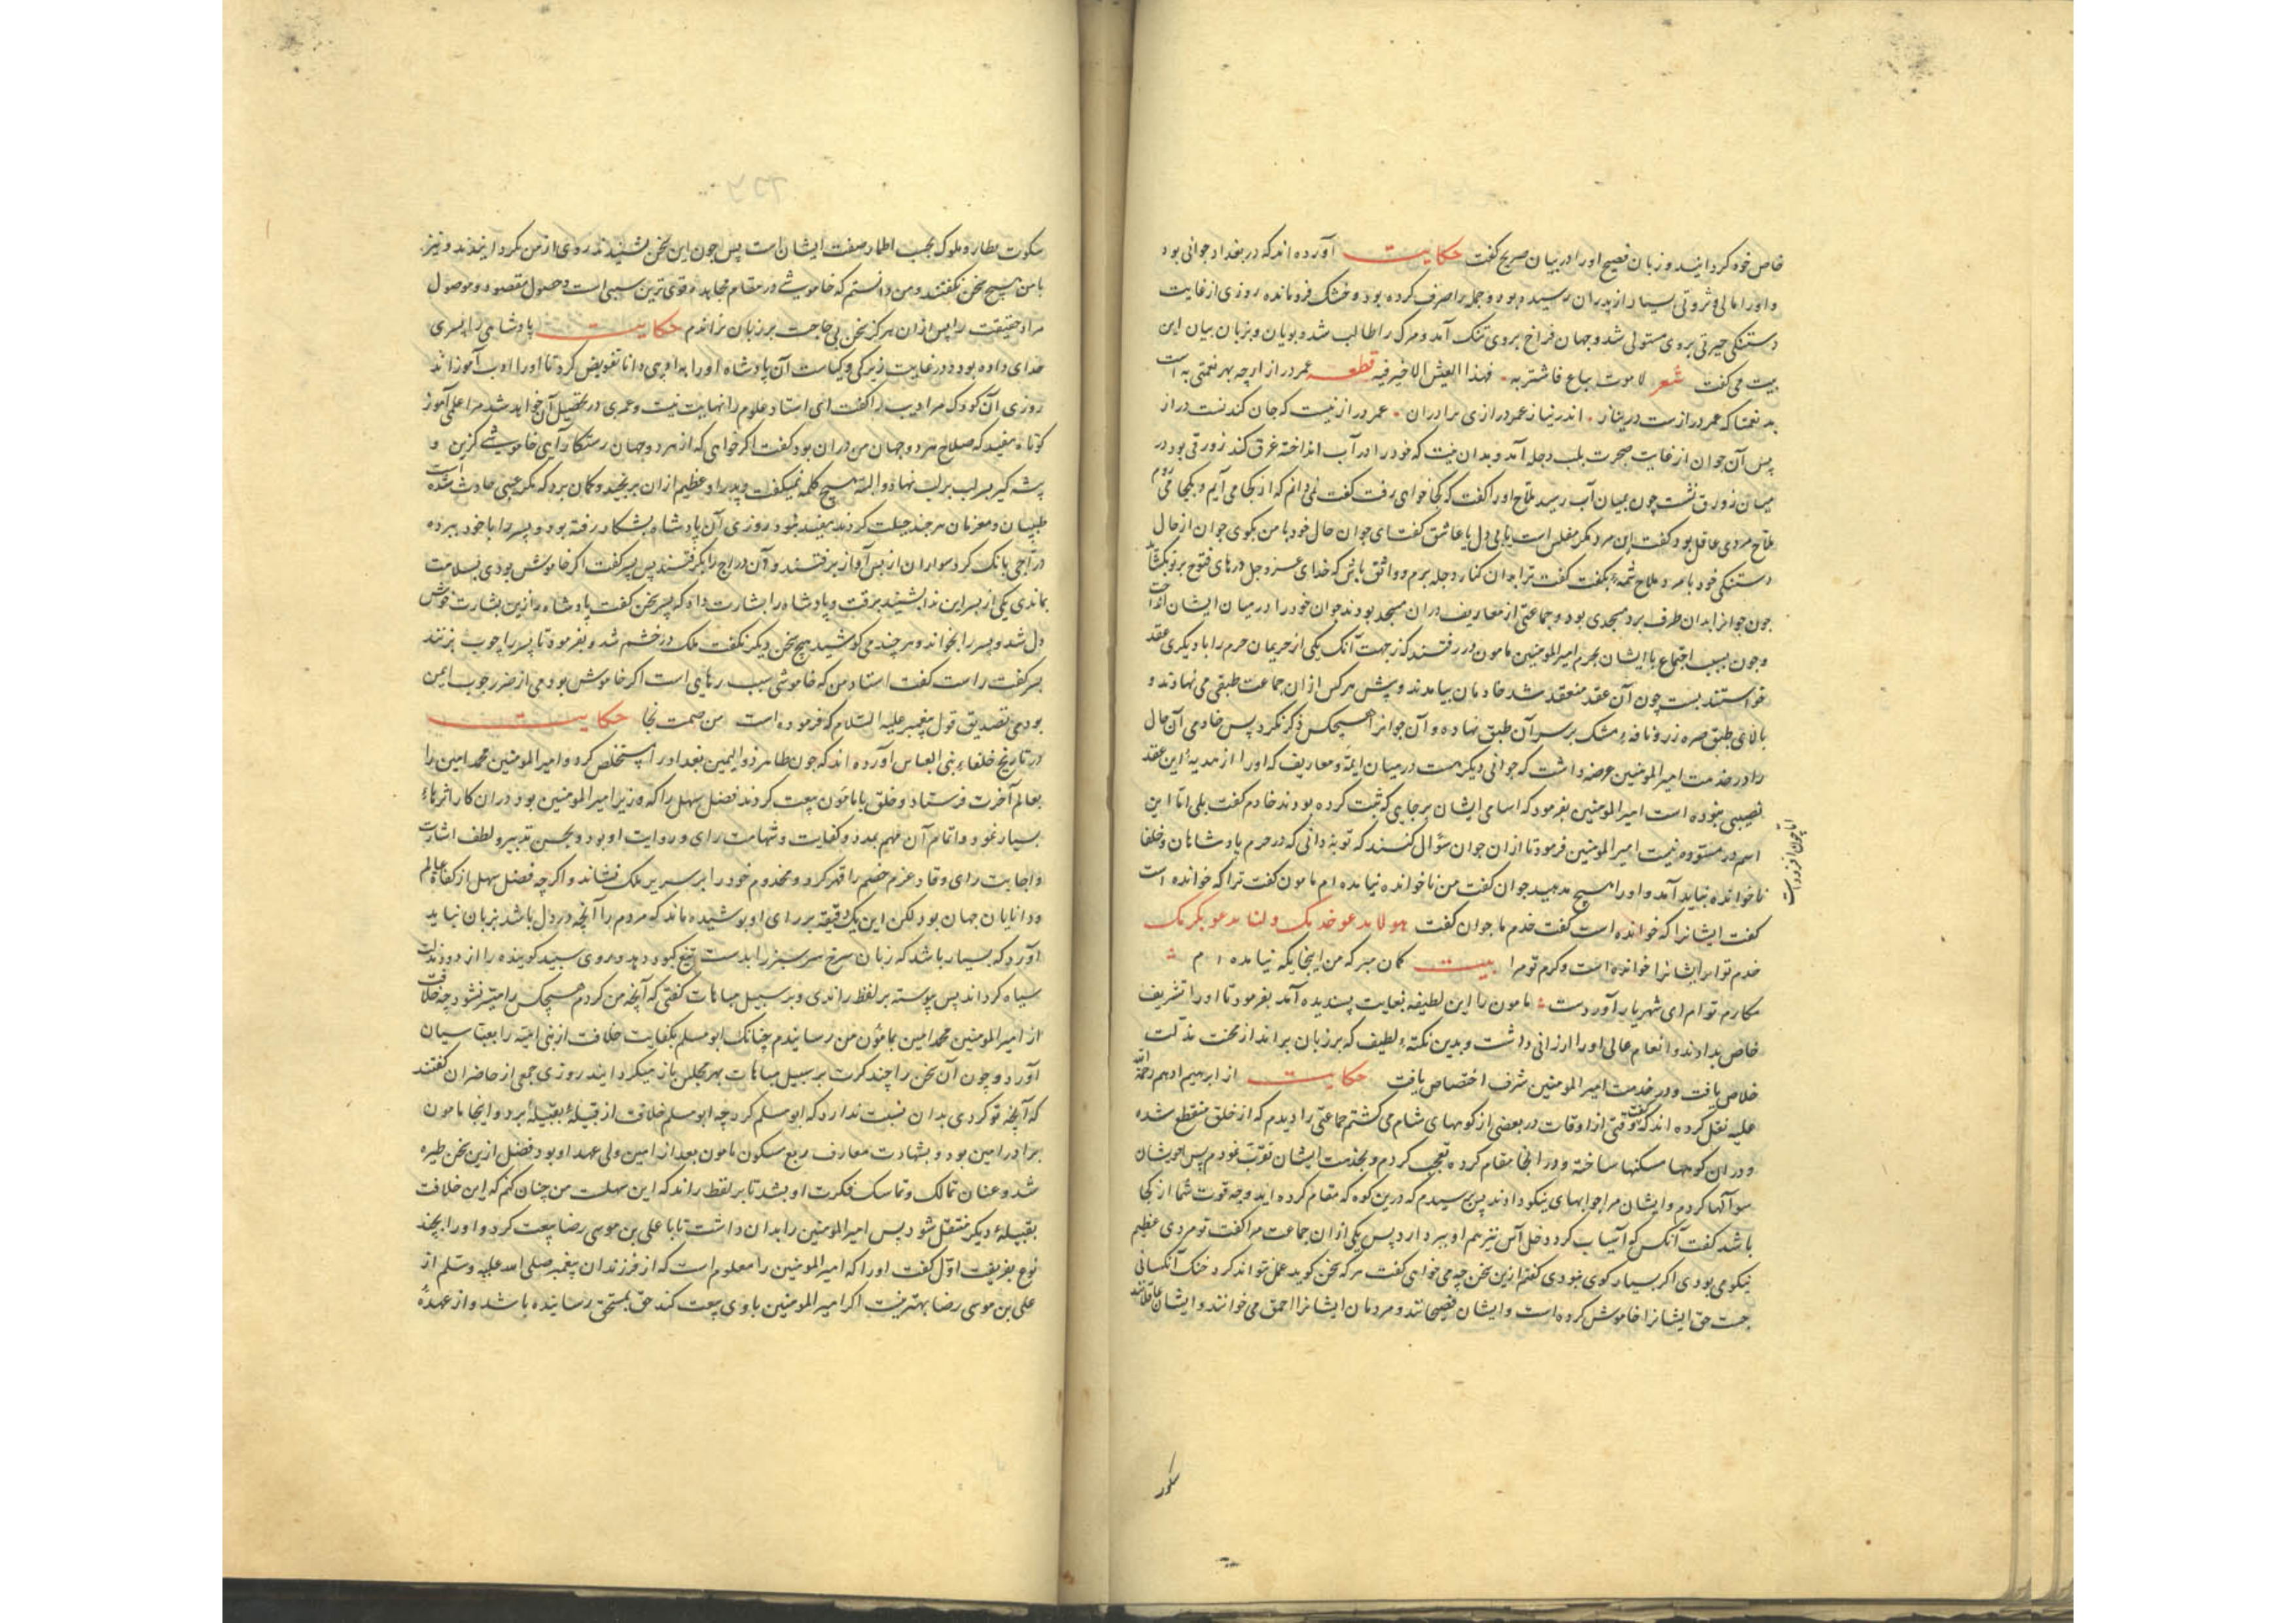 خاص خود کردانید و زبان فصیح اورا در بیان صریح کفت حکایت آورده اند که در بغداد جوانی بود
و اورا مالی و ثروتی بسیار از پدران رسیده بود و جمله را صرف کرده بود و خشک فرومانده روزی از غایت
دستنکی حیرتی بروی مستولی شد و جهان فراخ بروی تنک آمد و مرک را طالب شد و پویان و بزبان بیان این
بیت می کفت شعر لا موت یباع فاشتریه فهذا العیش لا خیر فیه قطعه عمر دراز ارچه بهر نعمتی به است
بد نعمتا که عمر درازست در نیاز اندر نیاز عمر درازی برادران عمر دراز نیست که جان کندنست دراز
پس آن جوان از غایت ضجرت بلب دجله آمد و بدان نیت که خود را در آب انداخته غرق کند زورقی بود در
میان زورق نشست چون بمیان آب رسید ملاح اورا کفت که کجا خواهی رفت کفت نمی دانم که از کجا می آیم و بکجا می روم
ملاح مردی عاقل بود کفت این مرد مکر مفلس است یا بی دل یا عاشق کفت ای جوان حال خود با من بکوی جوان از حال
دستنکی خود با مرد ملاح شمه بکفت کفت ترا بدان کنار دجله برم و واثق باش که خدای عز و جل درهای فتوح بر تو بکشاید
چون جوانرا بدان طرف برد مسجدی بود و جماعتی از معاریف در آن مسجد بودند جوان خود را در میان ایشان انداخت
و چون بسبب اجتماع با ایشان بحرم امیر المومنین مامون در رفتند که از جهت آنک یکی از حریمان حرم را با دیکری عقد
خواستند بست چون آن عقد منعقد شد خادمان بیامدند و پیش هر کس از ان جماعت طبقی می نهادند و
بالای طبق صره زر و نافه مشک بر سر آن طبق نهاده و آن جوانرا هیچکس ذکر نکرد پس خادمی آن حال
را در خدمت امیر المومنین عرضه داشت که جوانی دیکر هست در میان ایمه و معاریف که اورا از هدیه این عقد
نصیبی نبوده است امیر المومنین بفرمود که اسامی ایشان بر جایی که ثبت کرده بودند خادم کفت بلی اما این
اسم در مسوده نیست امیر المومنین فرمود تا از ان جوان سؤال کنند که تو ندانی که در حرم پادشاهان و خلفا
ناخوانده نباید آمد و اورا هیچ مدهید جوان کفت من ناخوانده نیامده ام مامون کفت ترا که خوانده است
کفت ایشانرا که خوانده است کفت خدم ما جوان کفت هولا یدعو خدمک و لنا یدعو بکرمک
خدم تو امر ایشانرا خوانده است و کرم تو مرا بیت کمان مبر که من اینجایکه نیامده ام
مکارم تو ام ای شهریار آوردست مامون را این لطیفه بغایت پسندیده آمد بفرمود تا اورا تشریف
خاص بدادند و انعام عالی اورا ارزانی داشت و بدین نکته لطیف که بر زبان براند از محنت مذلت
خلاص یافت و در خدمت امیر المومنین شرف اختصاص یافت حکایت از ابرهیم ادهم رحمة الله
علیه نقل کرده اند که کفت وقتی از اوقات در بعضی از کوههای شام می کشتم جماعتی را دیدم که از خلق منقطع شده
و در ان کوهها مسکنها ساخته و در انجا مقام کرده تعجب کردم و بخدمت ایشان تقرب نمودم پس از ایشان
سوالها کردم و ایشان مرا جوابهای نیکو دادند پس پرسیدم که درین کوه که مقام کرده اید وجه قوت شما از کجا
باشد کفت آنکس که آسیاب کرد دخل آس نیز هم او بردارد پس یکی از ان جماعت مرا کفت تو مردی عظیم
نیکو می بودی اکر بسیار کوی نبودی کفتم ازین سخن چه می خواهی کفت هر که سخن کوید عمل تواند کرد خنک آنکسانی
خشیت حق ایشانرا خاموش کرده است و ایشان فصیحانند و مردمان ایشانرا احمق می خوانند و ایشان عاقلانند
اما چون افزوداست
سکوت
سکوت نظاره ملوک بحسب صفت ایشان است پس چون این سخن بشنیدند روی از من بکردانیدند و نیز
با من هیچ سخن نکفتند و من دانستم که خاموشی در مقام مجاهده قوی ترین سببی است و حصول مقصود و موصول
مراد حقیقت را پس از ان هرکز سخن بی حاجت بر زبان نراندم حکایت پادشاهی را پسری
خدای داده بود در غایت زیرکی و کیاست آن پادشاه اورا بدادیبی دانا تفویض کرد تا اورا ادب آموزاند
روزی آن کودک مر ادیب را کفت ای استاد علوم را نهایت نیست و عمری در تحصیل آن نخواهد شد مرا علمی آموز
کوتاه مفید که صلاح هر دو جهان من در ان بود کفت اکر خواهی که از هر دو جهان رستکار آیی خاموشی کزین و
پیشه کیر پسر لب بر لب نهاد و البته هیچ کلمه نمیکفت و پدر او عظیم از ان برنجید و کمان برد که مکر عیبی حادث شده است
طبیبان و معزمان هرچند حیلت کردند مفید نبود روزی آن پادشاه بشکار رفته بود و پسر را با خود ببرده
دراجی بانک کرد سواران از پس آواز برفتند و آن دراج را بکرفتند پس پسر کفت اکر خاموش بودی بسلامت
بماندی یکی از پسر این ندا بشنید برفت و پادشاه را بشارت داد که پسر سخن کفت پادشاه ازین بشارت خوش
دل شد و پسر را بخواند و هر چند می کوشید هیچ سخن دیکر نکفت ملک در خشم شد و بفرمود تا پسر را چوب بزنند
پسر کفت راست کفت استاد من که خاموشی سبب رهایی است اکر خاموش بودمی از ضرر چوب ایمن
بودمی تصدیق قول پیغمبر علیه السلام که فرموده است من صمت نجا حکایت
در تاریخ خلفاء بنی العباس آورده اند که چون طاهر ذو الیمین بغداد را مستخلص کرد و امیر المومنین محمد امین را
بعالم آخرت فرستاد و خلق با مامون بیعت کردند فضل سهل را که وزیر امیر المومنین بود در ان کار اثرهاء
بسیار نمود و اتمام آن مهم بمدد و کفایت و شهامت رای و روایت او بود و بحسن تدبیر و لطف اشارت
و اجابت رای وقاد عزم خصم را قهر کرد و مخدوم خود را بر سریر ملک نشاند و اکرچه فضل سهل از کفاة عالم
و دانایان جهان بود لکن این یک دقیقه بر رای او پوشیده ماند که مردم را آنچه در دل باشد بزبان نباید
آورد که بسیار باشد که زبان سرخ سر سبز را بدست تیغ کبود دهد و روی سپید کوینده را از دود ندامت
سیاه کرداند پس پیوسته بر لفظ راندی و بر سبیل مباهات کفتی که آنچه من کردم هیچکس را میسر نشود چه خلافت
از امیر المومنین محمد امین بمامون من رسانیدم چنانک ابو مسلم بکفایت خلافت از بنی امیه را بعباسیان
آورد و چون آن سخن را چند کرت بر سبیل مباهات بهر مجلس باز میکردانید روزی جمعی از حاضران کفتند
که آنچه تو کردی بدان نسبت ندارد که ابو مسلم کرد چه ابو مسلم خلافت از قبیله بقبیله برد و اینجا مامون
برادر امین بود و بشهادت معارف ربع مسکون مامون بعد از امین ولی عهد او بود فضل ازین سخن طیره
شد و عنان تمالک و تماسک فکرت او بشد تا بر لفظ راند که این سهلست من چنان کنم که این خلافت
بقبیله دیکر منتقل شود پس امیر المومنین را بدان داشت تا با علی بن موسی رضا بیعت کرد و اورا بچند
نوع بفریفت اول کفت اورا که امیر المومنین را معلوم است که از فرزندان پیغمبر صلی الله علیه و سلم از
علی بن موسی رضا بهتر نیست اکر امیر المومنین با وی بیعت کند حق بمستحق رسانیده باشد و از عهده